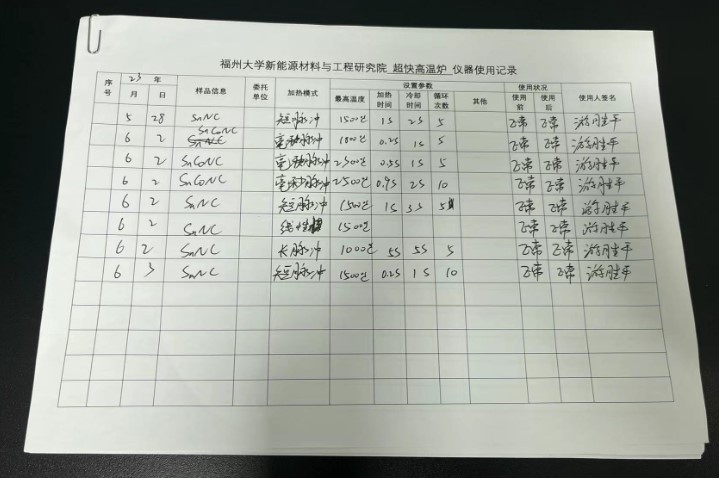 福州大学新能源材料与工程研究院 超快高温炉 仪器使用记录
序号 23 年 样品信息 委托单位 加热模式 设置参数 使用状况 使用人签名
月 日 最高温度 加热时间 冷却时间 循环次数 其他 使用前 使用后
5 28 SnNC 短脉冲 1500℃ 1S 2S 5 正常 正常 游胜平
6 2 SnCoNC 毫秒脉冲 0.2S 1S 5 正常 正常 游胜平
6 2 SnCoNC 毫秒脉冲 2500℃ 0.5S 1S 5 正常 正常 游胜平
6 2 SnCoNC 毫秒脉冲 2500℃ 0.9S 2S 10 正常 正常 游胜平
6 2 SnNC 短脉冲 1500℃ 1S 5 正常 正常 游胜平
6 2 SnNC 1500℃ 正常 正常 游胜平
6 2 SnNC 长脉冲 1000℃ 5S 5S 5 正常 正常 游胜平
6 3 SnNC 短脉冲 1500℃ 0.2S 1S 10 正常 正常 游胜平